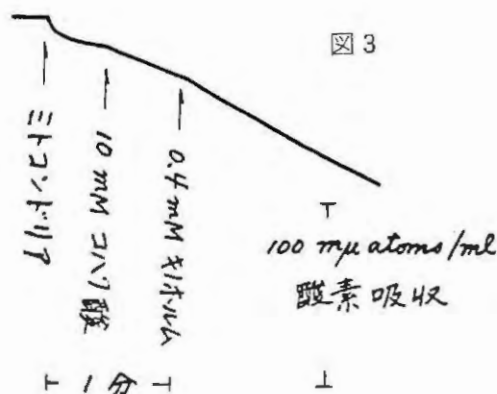 図3
ミトコンドリア
10 mM コハク酸
0.4 mM キノホルム
100 mμ atoms/ml
酸素吸収
1分